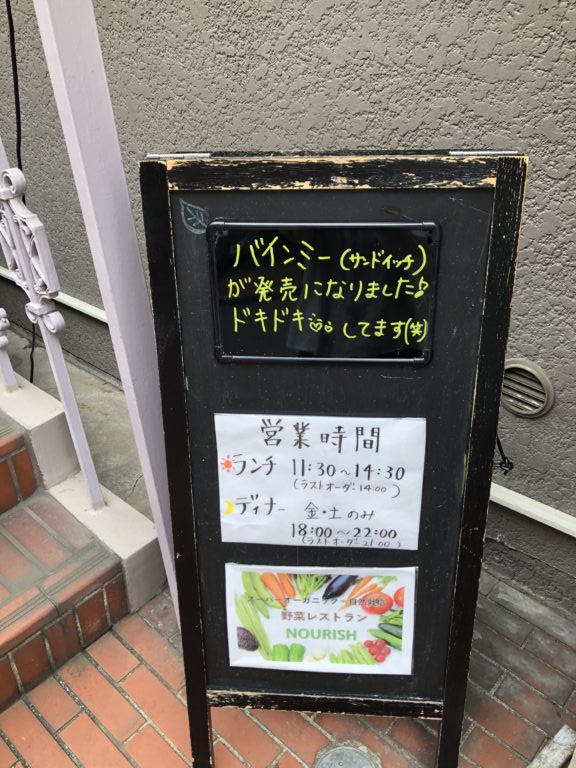 バインミー(サンドイッチ)
が発売になりました♪
ドキドキ してます(笑)
営業時間
ランチ 11:30〜14:30
(ラストオーダー 14:00)
ディナー 金・土のみ
18:00〜22:00
(ラストオーダー 21:00)
スーパーオーガニック〜自然栽培
野菜レストラン
NOURISH